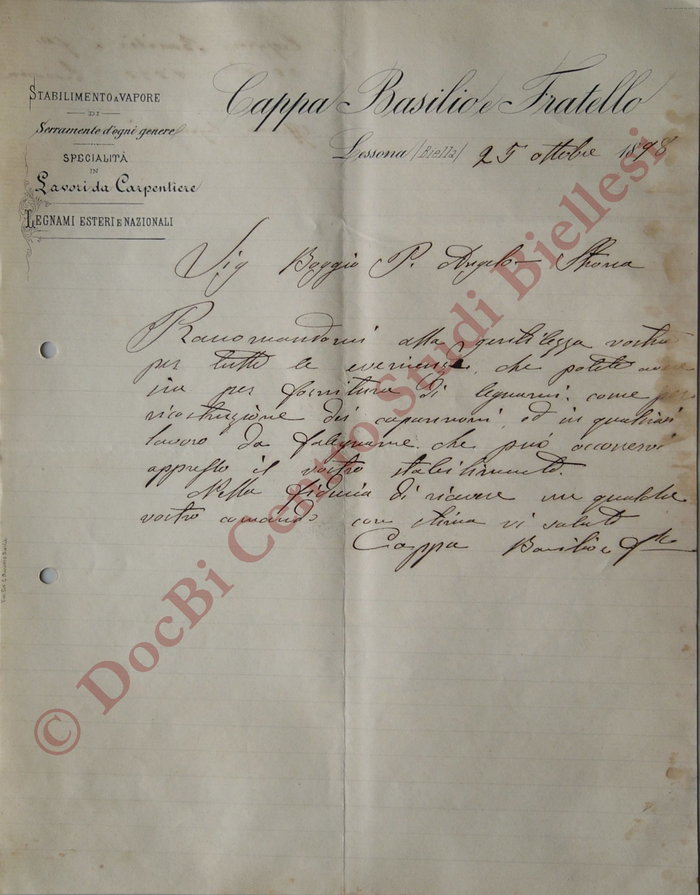 STABILIMENTO A VAPORE
DI
Serramento d'ogni genere
SPECIALITÀ
IN
Lavori da Carpentiere
LEGNAMI ESTERI E NAZIONALI
Cappa Basilio e Fratello
Lessona (Biella) 25 ottobre 1898
Sig Boggio P. Angelo Strona
Racomandomi alla gentilezza vostra
per tutte le evenienze che potete ave
in per fornitura di legnami come per
ricostruzione dei capannoni, od in qualsiasi
lavoro da falegname che può occorrervi
appresso il vostro stabilimento.
Nella fiducia di ricevere un qualche
vostro comando con stima vi saluto
Cappa Basilio e flo
© DocBi Centro Studi Biellesi